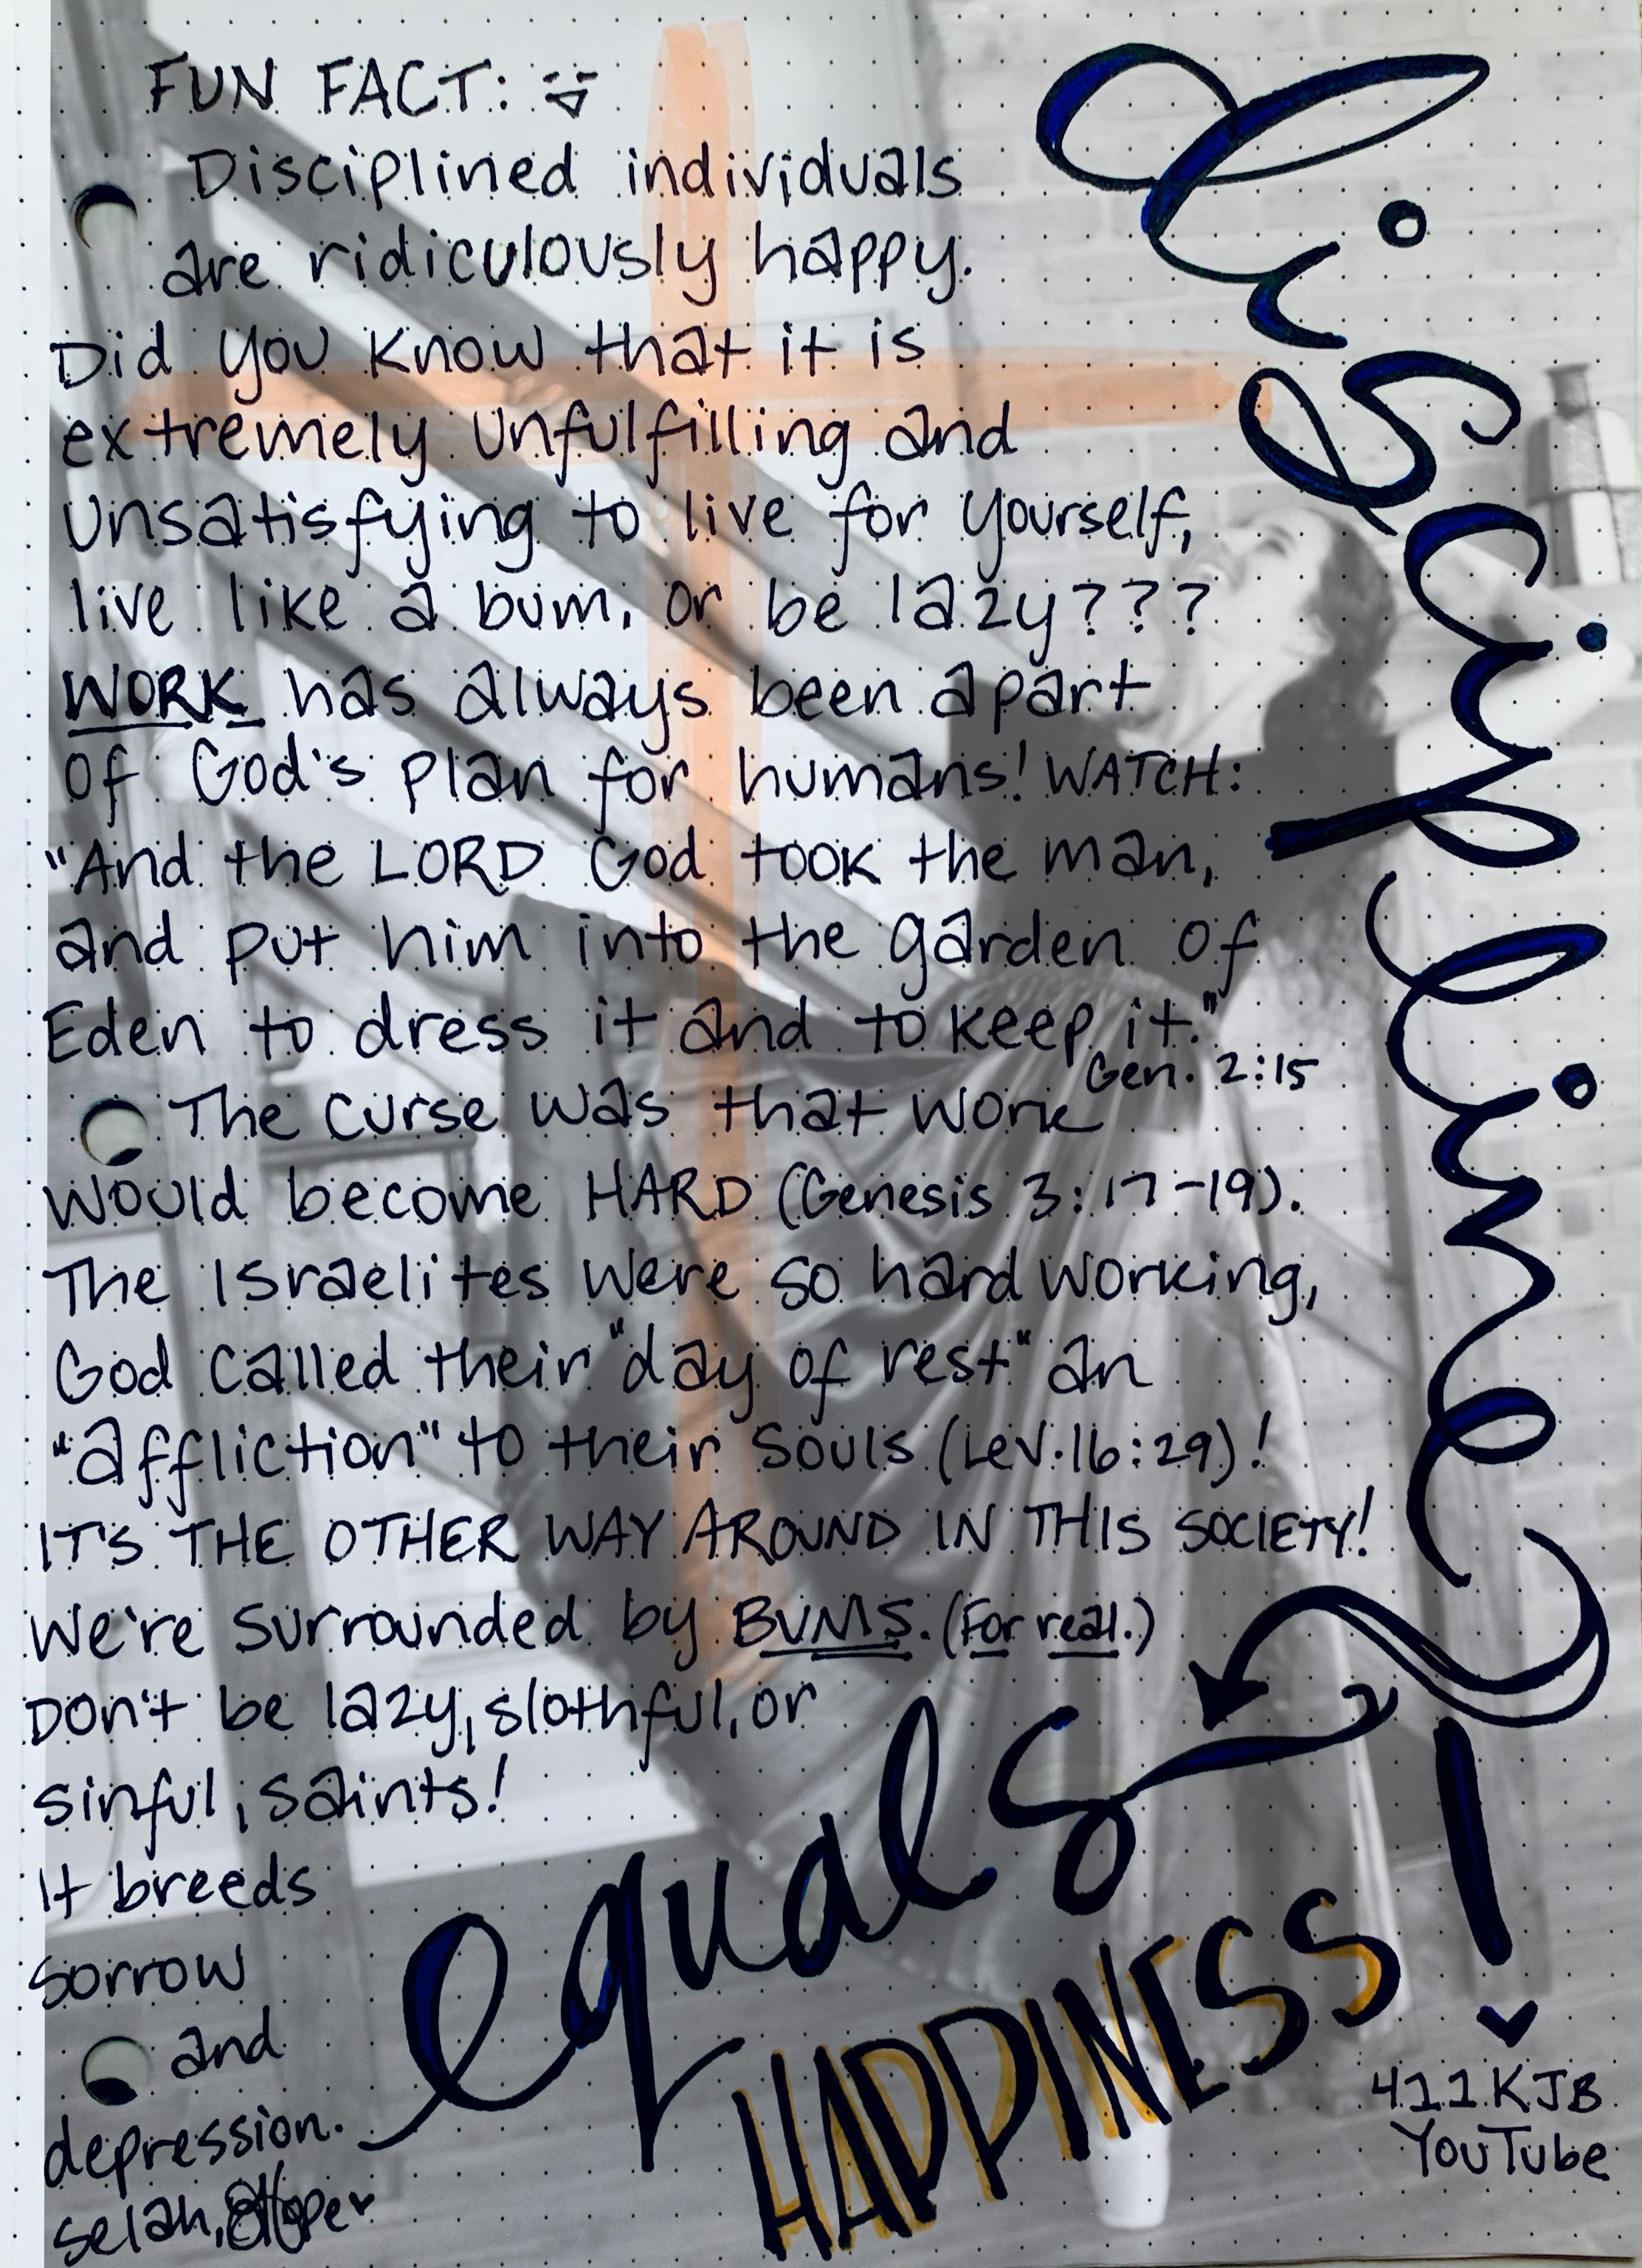 FUN FACT:
Disciplined individuals
are ridiculously happy.
Did you know that it is
extremely unfulfilling and
unsatisfying to live for yourself,
live like a bum, or be lazy???
WORK has always been apart
of God's plan for humans! WATCH:
"And the LORD God took the man,
and put him into the garden of
Eden to dress it and to keep it."
Gen. 2:15
The curse was that work
would become HARD (Genesis 3:17-19).
The Israelites were so hard working,
God called their "day of rest" an
"affliction" to their souls (Lev. 16:29)!
IT'S THE OTHER WAY AROUND IN THIS SOCIETY!
We're surrounded by BUMS. (For real.)
Don't be lazy, slothful, or
sinful, saints!
It breeds
sorrow
and
depression.
selah,
Discipline
equals
HAPPINESS!
411KJB
YouTube